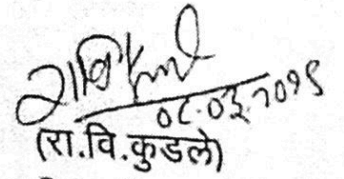 ०८.०३.२०१९
(रा.वि.कुडले)